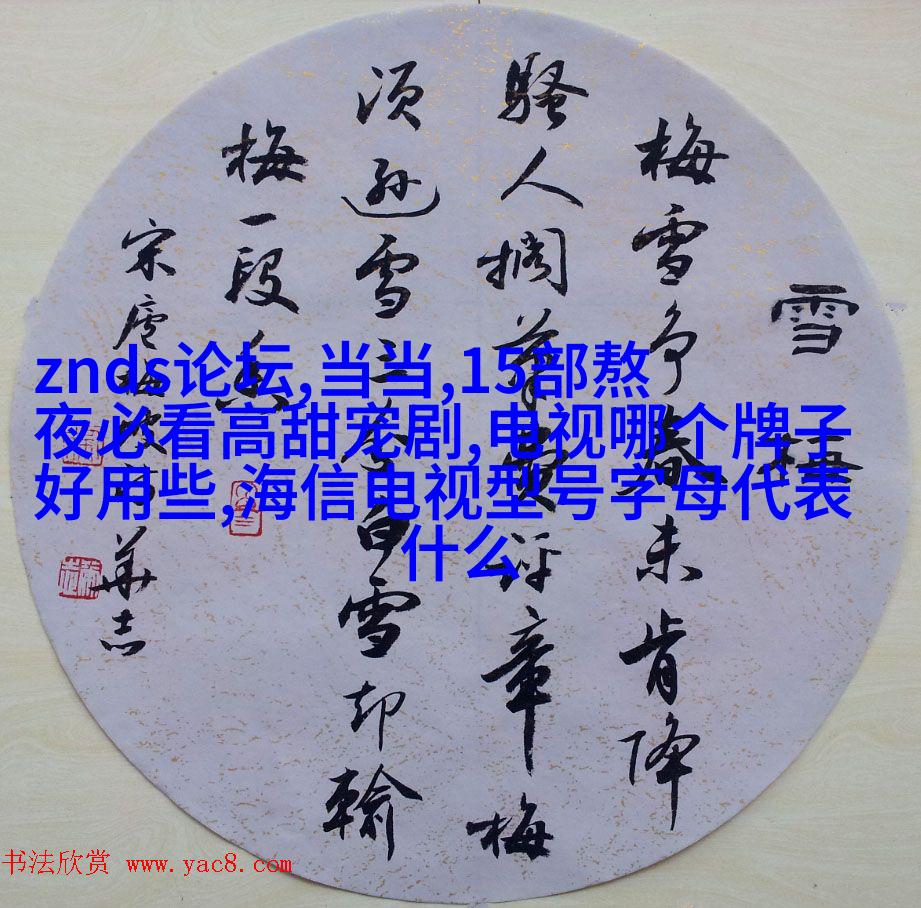 雪梅
梅雪争春未肯降
骚人搁笔费评章梅
须逊雪三分白雪却輸
梅一段香
宋卢梅坡诗 华志
znds论坛,当当,15部熬
夜必看高甜宠剧,电视哪个牌子
好用些,海信电视型号字母代表
什么
书法欣赏 www.yac8.com